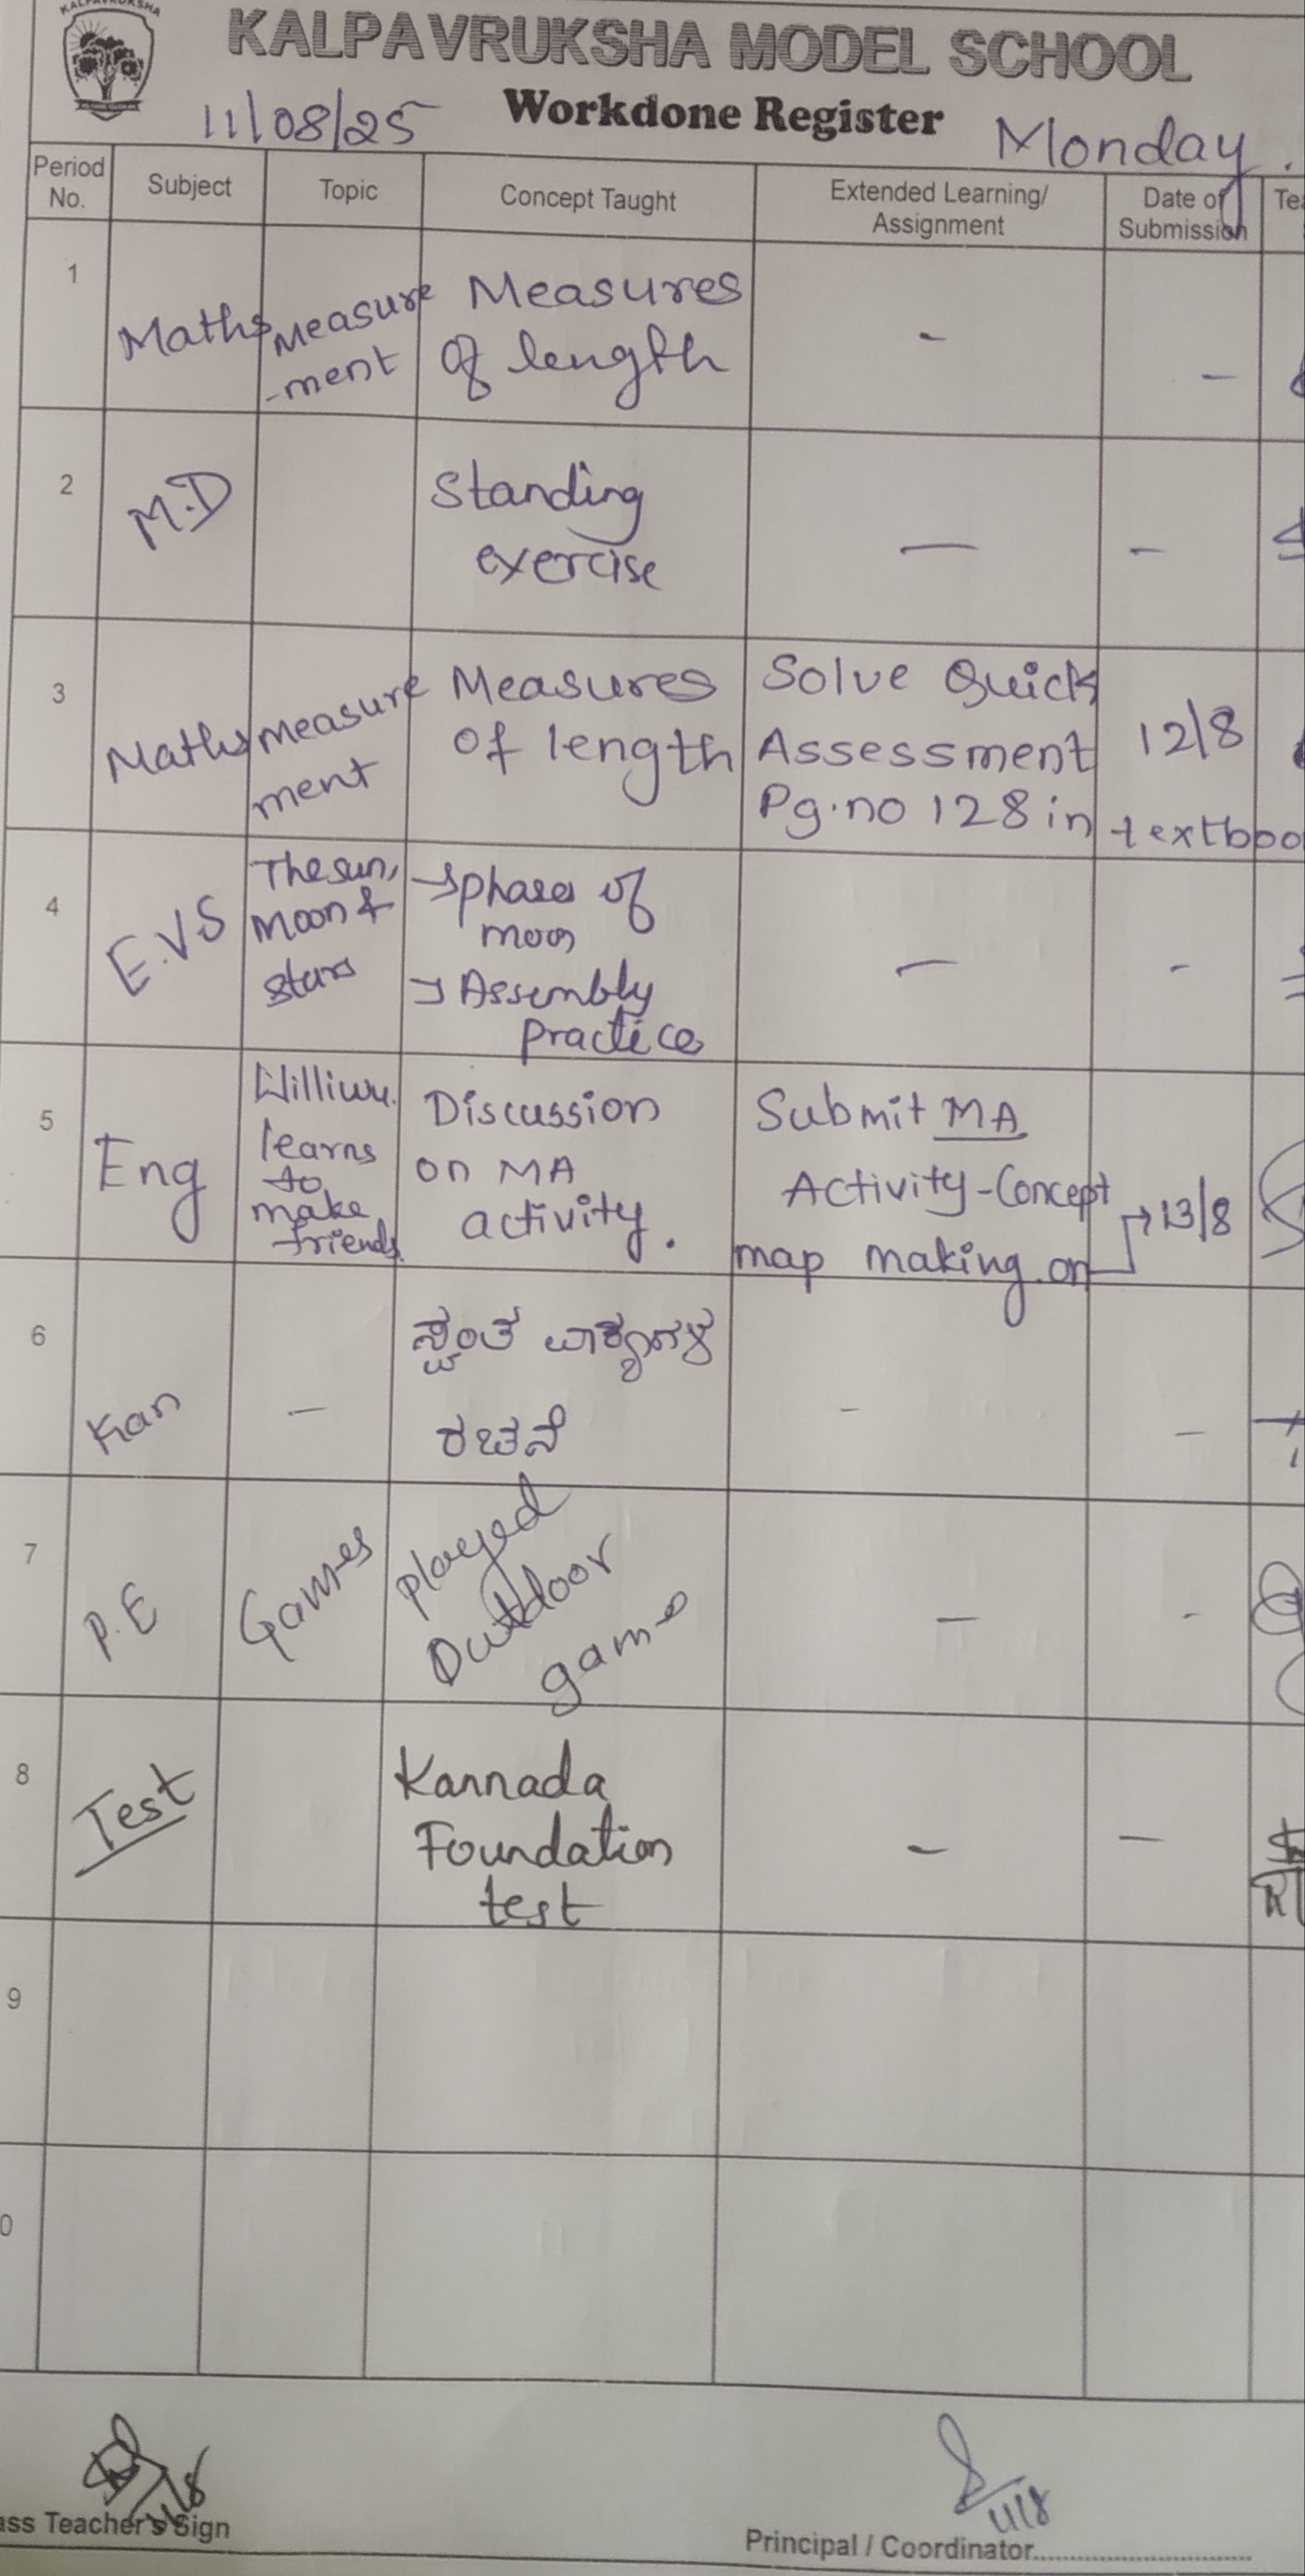 KALPAVRUKSHA
KALPAVRUKSHA MODEL SCHOOL
11/08/25 Workdone Register Monday.
Period No. Subject Topic Concept Taught Extended Learning/ Assignment Date of Submission Tea
1 Maths Measure Measures
-ment of length - -
2 M.D Standing
exercise — -
3 Maths Measure Measures Solve Quick
ment of length Assessment 12/8
Pg.no 128 in textboo
4 E.V.S The sun, → phases of
Moon & moon
stars → Assembly — -
Practice
5 Eng learns Discussion Submit MA
to on MA Activity-Concept
make activity. map making on → 13/8
friends
6 Kan — ಸ್ವಂತ ವಾಕ್ಯಗಳ - -
ರಚನೆ
7 P.E Games played
Outdoor — -
game
8 Test Kannada
Foundation - —
test
9
0
11/8 11/8
ass Teacher's Sign Principal / Coordinator